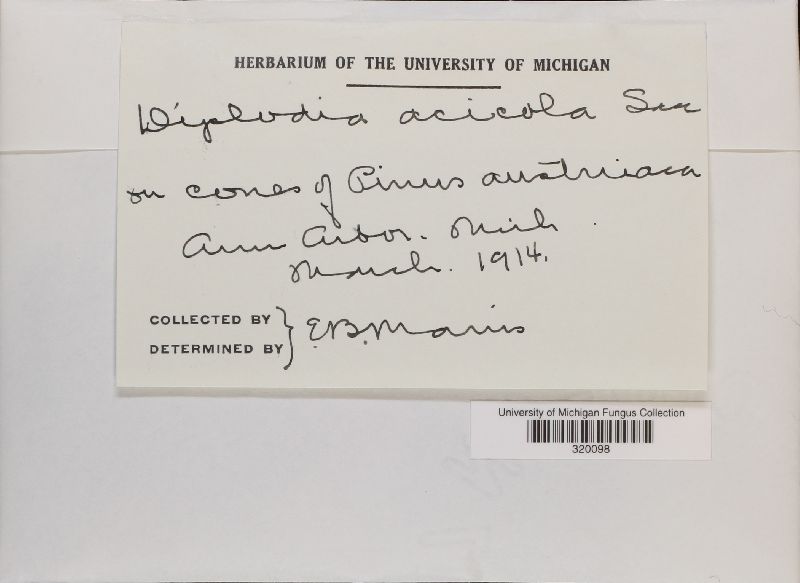 HERBARIUM OF THE UNIVERSITY OF MICHIGAN
Diplodia acicola Sacc
on cones of Pinus austriaca
Ann Arbor. Mich.
March. 1914.
COLLECTED BY
DETERMINED BY } E.B. Mains
University of Michigan Fungus Collection
320098